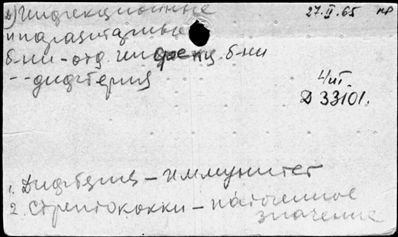 2) Инфекционные 27.II.65 кр
и паразитарные
б-ни – отд. инфекц. б-ни
– – дифтерия
Чит.
Д 33101.
1. Дифтерия – иммунитет
2. Стрептококки – патогенное
значение